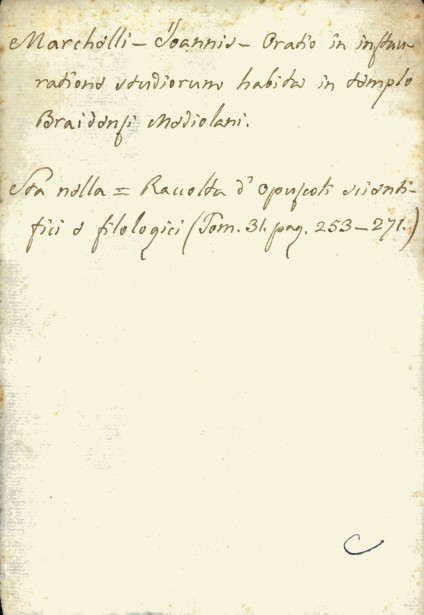 Marchelli - Joannis - Oratio in instau-
ratione studiorum habita in templo
Braidensi Mediolani.
Sta nella = Raccolta d'Opuscoli scienti-
fici e filologici (Tom. 31. pag. 253-271.)
C